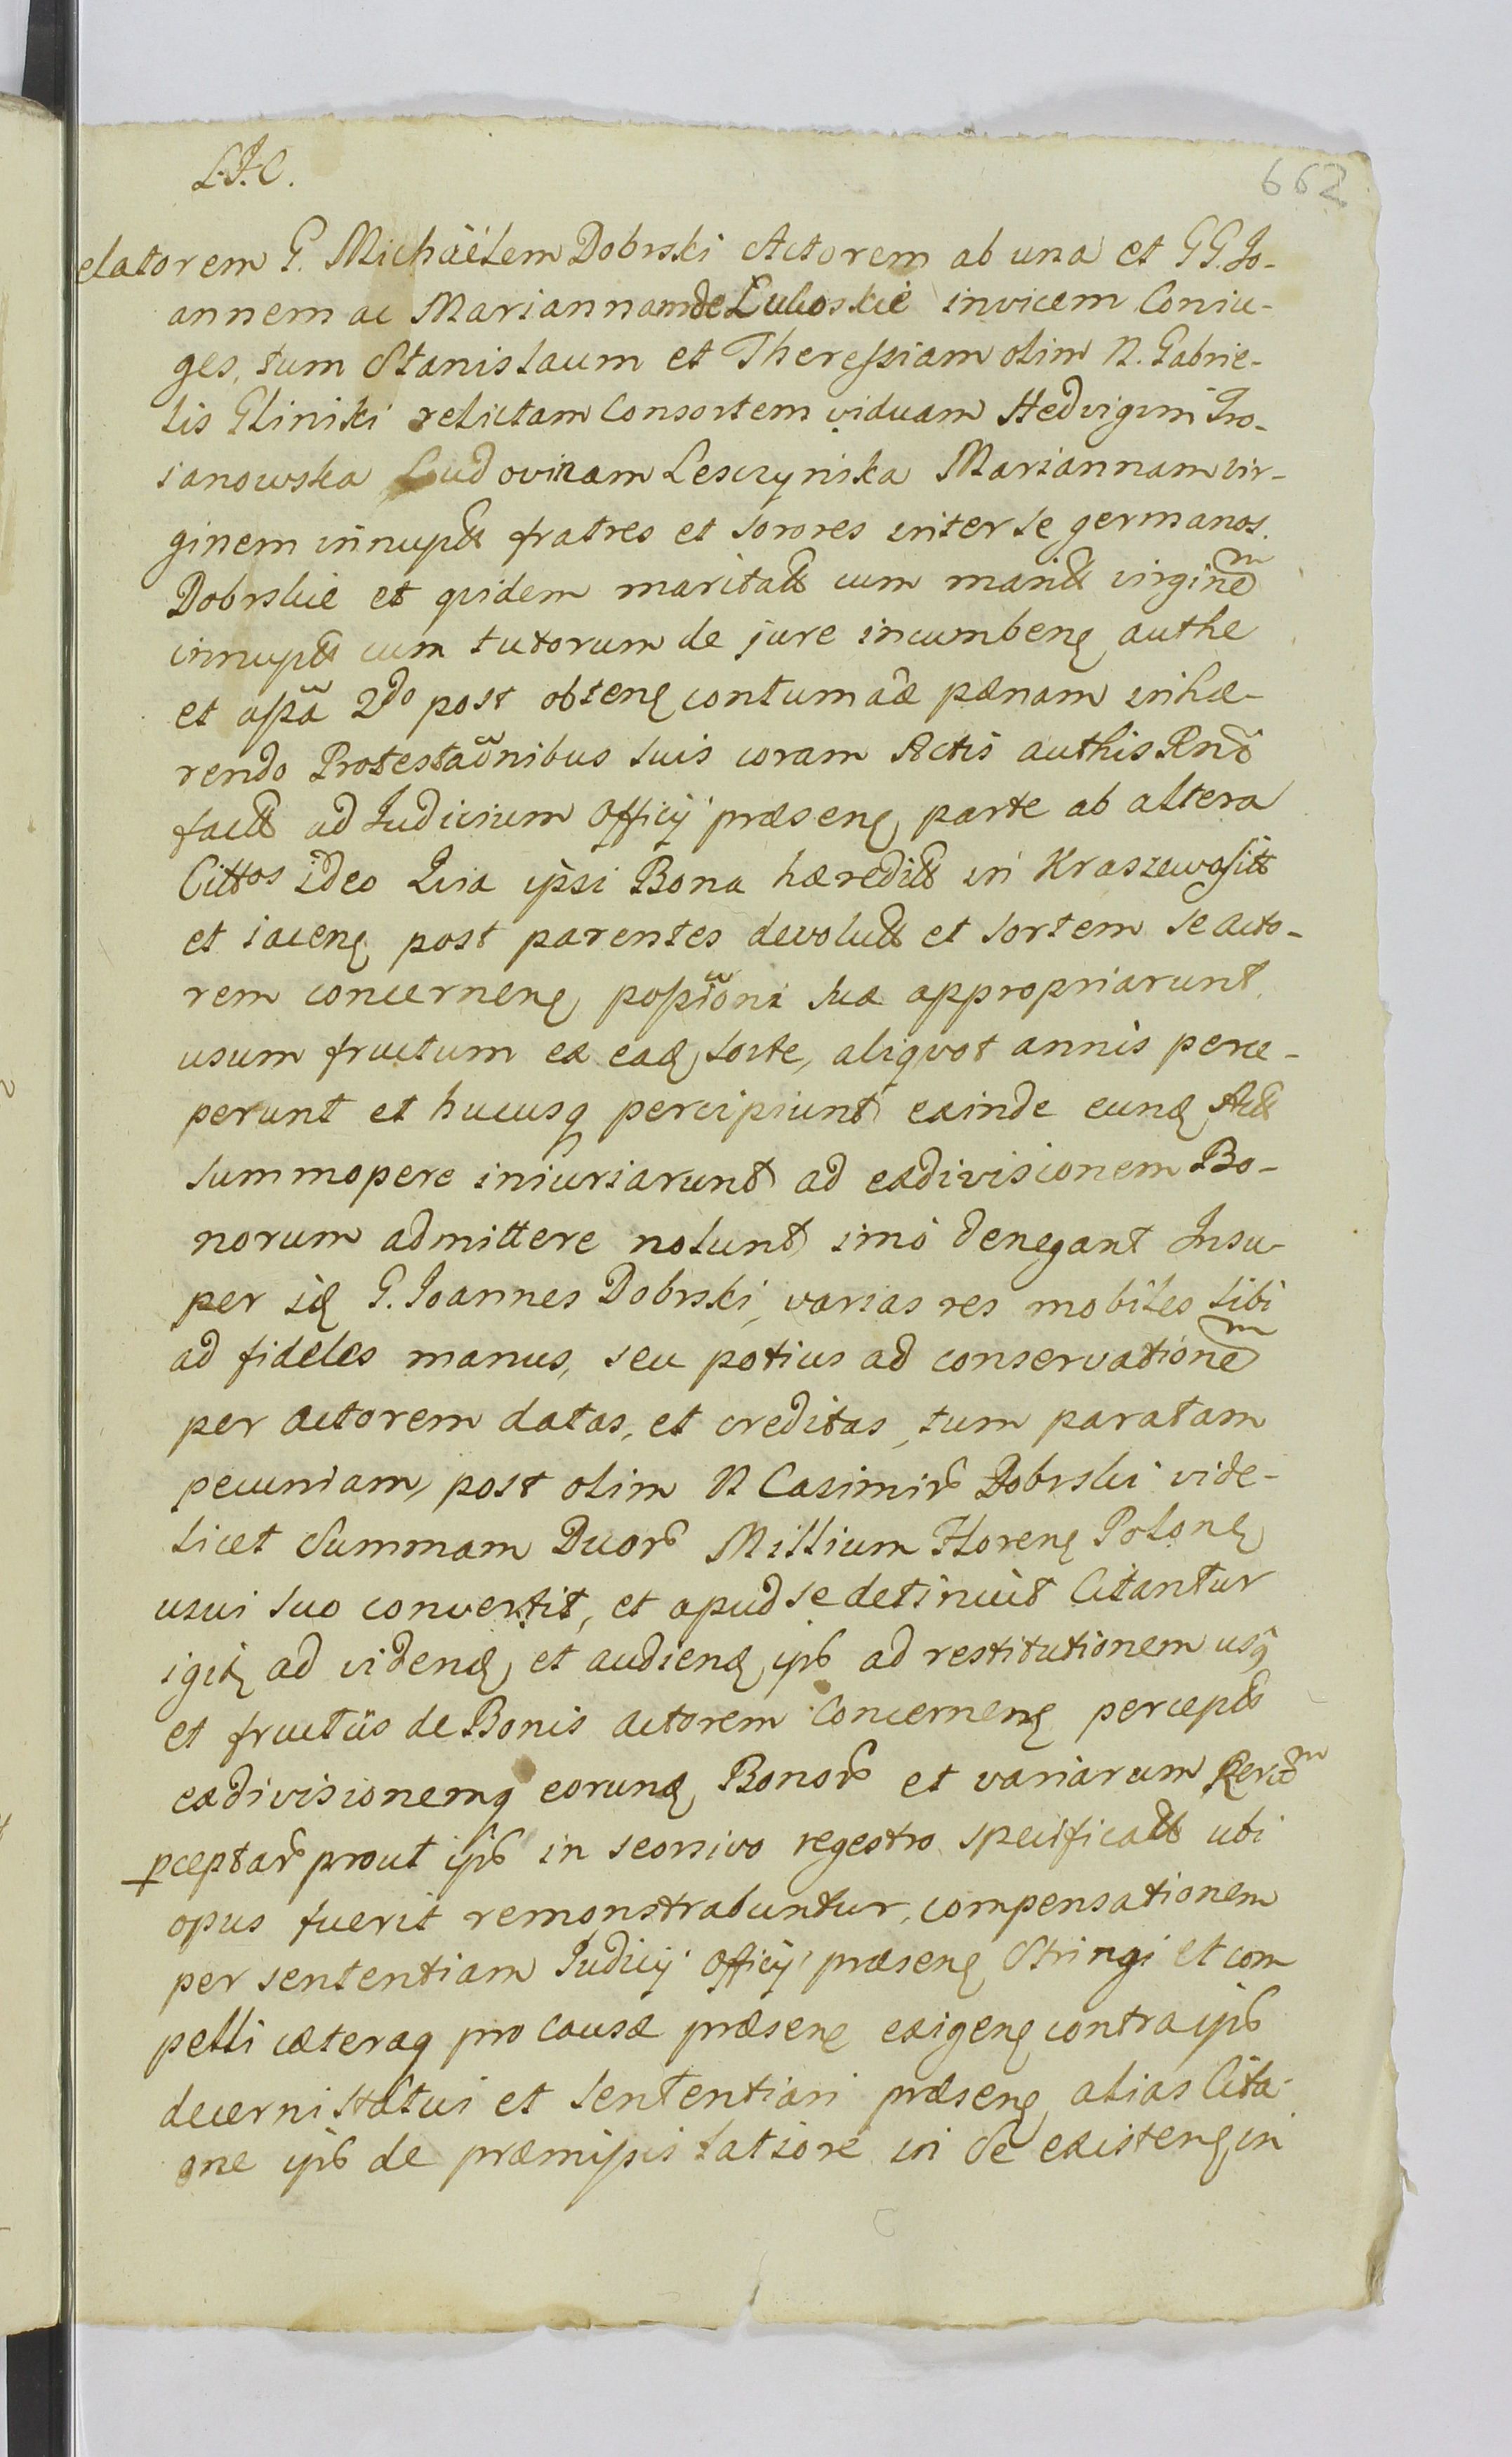 L.I.C.
662
elatorem G. Michäélem Dobrski Actorem ab una et GG. Jo-
annem ac Mariannam de Luboskie invicem Coniu-
ges, tum Stanislaum et Theressiam olim N. Gabrie-
lis Gliniki relictam Consortem viduam Hedvigim Tro-
janowska Ludovicam Lesczynska Mariannam vir-
ginem innuptt fratres et sorores inter se germanos.
Dobrskie et quidem maritatt cum maritt virginem
innuptt cum tutorum de jure incumbenē authe
et assā 2do post obtenē contumāe pænam inhæ-
rendo Protestaõnibus suis coram Actis authis
factt ad Judicium Officij præsenē parte ab altera
Cittos ideo Quia ipsi Bona hæreditt in Kraszewo sitt
et iacenē post parentes devolutt et sortem se acto-
rem concernenē possioni suæ appropriarunt
usum fructum ex eadē sorte, aliqvot annis perce-
perunt et hucusq percipiunt exinde eundē Actt
summopere iniuriarunt ad exdivisionem Bo-
norum admittere nolunt imò denegant Insu-
per idē G. Joannes Dobrski, varias res mobiles sibi
ad fideles manus, seu potius ad conservationem
per actorem datas, et creditas, tum paratam
pecuniam, post olim N Casimirū Dobrski vide-
licet Summam Duorū Millium Florenē Polonē
usui suo convertit, et apud se detinuit Citantur
igitē ad videndē et audiendē ips ad restitutionem usq
et fructûs de Bonis actorem Concernenē perceptt
exdivisionemq eorundē Bonorū et variarum Rerum
pceptarū prout ips in seorsivo regestro specificatt ubi
opus fuerit remonstrabuntur, compensationem
per sententiam Judicij Officij præsenē Stringi et com
pelli cæteraq pro causa præsenē exigenē contra ips
decerni statui et sententiari præsenē alias Cita-
one ips de præmissis latiore in se existenē in